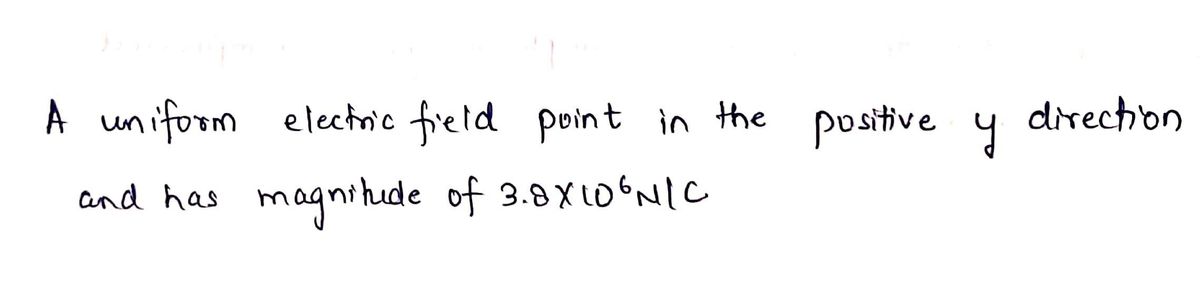 A uniform electric field point in the positive y direction
and has magnitude of 3.8X10⁶N/C